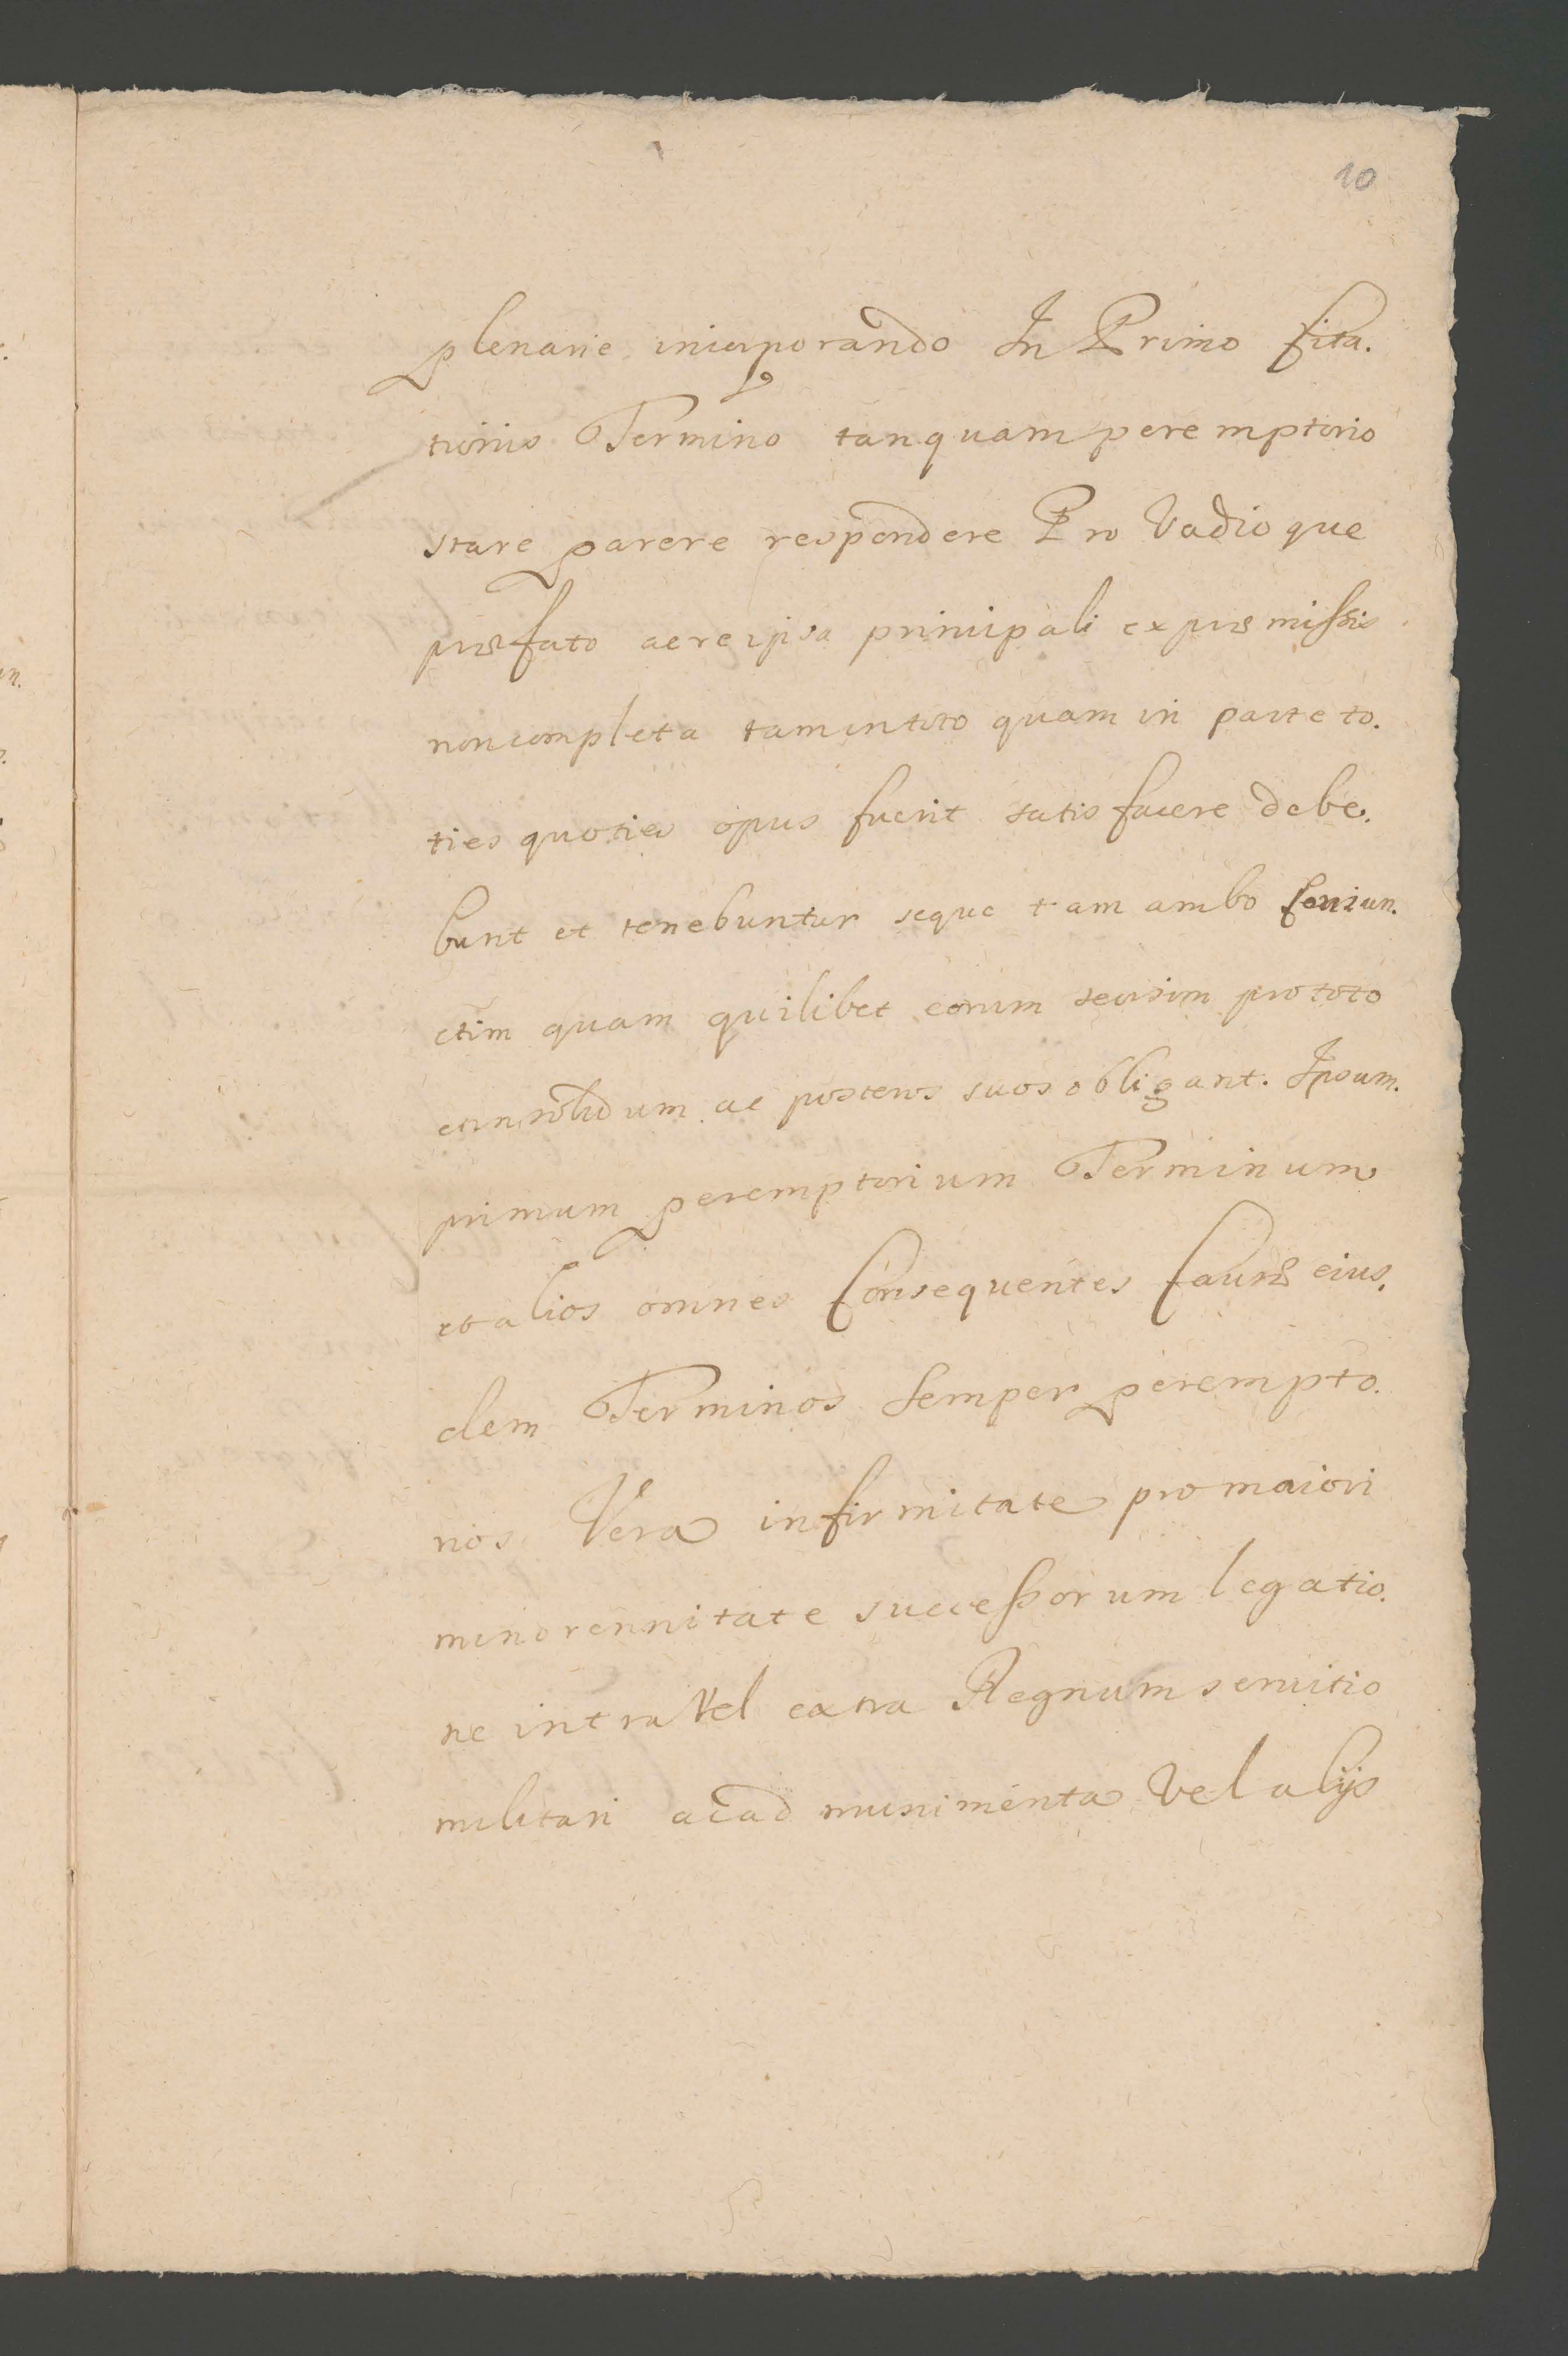 10
plenarie incorporando In Primo Cita.
tionis Termino tanquam peremptorio
stare parere respondere Pro Vadio que
præfato ac re ipsa principali ex præmissis
non completa tam in toto quam in parte to.
ties quoties opus fuerit satisfacere debe.
bunt et tenebuntur seque tam ambo Coniun.
ctim quam quilibet eorum seorsim pro toto
et in solidum ac posteros suos obligant. Ipsum.
primum peremptorium Terminum
et alios omnes Consequentes Causæ eius.
dem Terminos Semper perempto.
rios Vera infirmitate pro maiori
minorennitate successorum legatio.
ne intra Vel extra Regnum servitio
militari ac ad munimenta Vel alijs